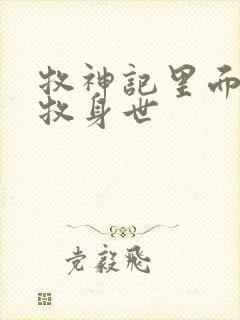 牧神記里而
牧身世
党毅飛